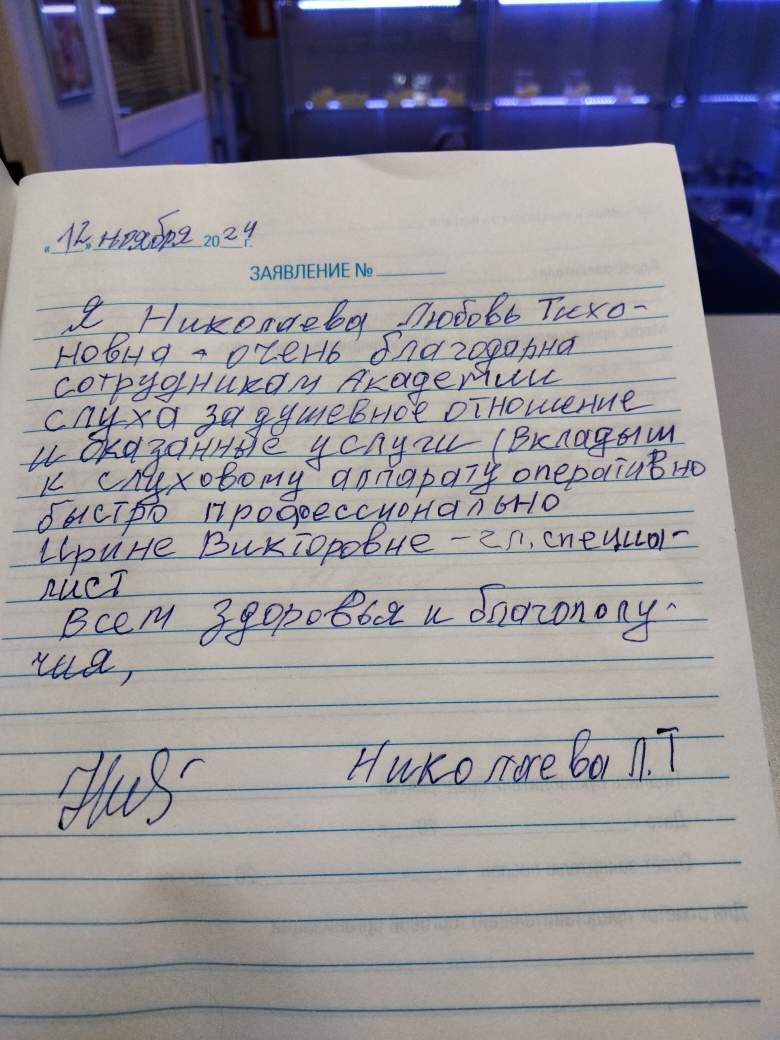 «12» ноября 2024 г.
ЗАЯВЛЕНИЕ №
Я Николаева Любовь Тихо-
новна - очень благодарна
сотрудникам Академии
слуха за душевное отношение
и оказанные услуги (вкладыш
к слуховому аппарату оперативно
быстро профессионально
Ирине Викторовне - гл. специа-
лист
Всем здоровья и благополу-
чия,
Николаева Л.Т